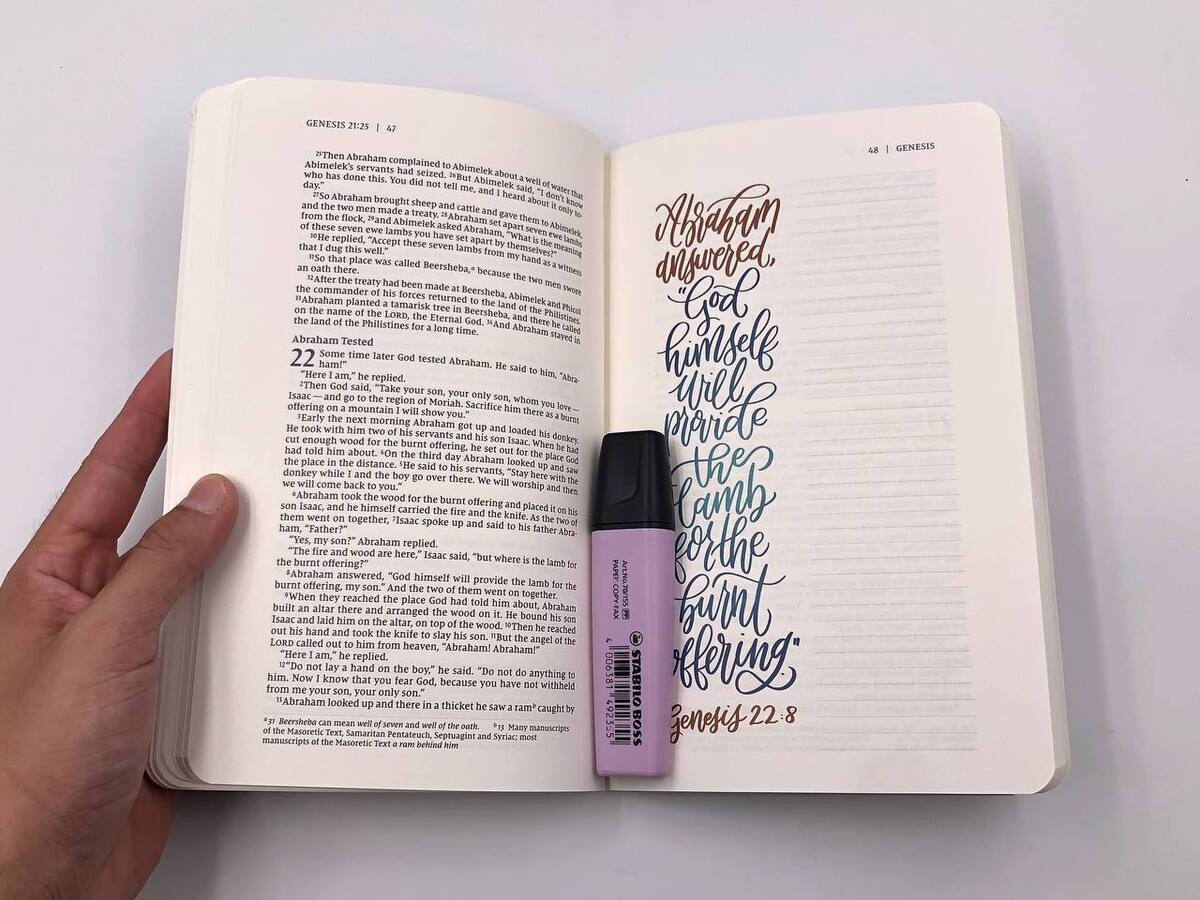 GENESIS 21:25 | 47
25Then Abraham complained to Abimelek about a well of water that
Abimelek's servants had seized. 26But Abimelek said, "I don't know
who has done this. You did not tell me, and I heard about it only to-
day."
27So Abraham brought sheep and cattle and gave them to Abimelek,
and the two men made a treaty. 28Abraham set apart seven ewe lambs
from the flock, 29and Abimelek asked Abraham, "What is the meaning
of these seven ewe lambs you have set apart by themselves?"
30He replied, "Accept these seven lambs from my hand as a witness
that I dug this well."
31So that place was called Beersheba,a because the two men swore
an oath there.
32After the treaty had been made at Beersheba, Abimelek and Phicol
the commander of his forces returned to the land of the Philistines.
33Abraham planted a tamarisk tree in Beersheba, and there he called
on the name of the LORD, the Eternal God. 34And Abraham stayed in
the land of the Philistines for a long time.
Abraham Tested
22 Some time later God tested Abraham. He said to him, "Abra-
ham!"
"Here I am," he replied.
2Then God said, "Take your son, your only son, whom you love—
Isaac—and go to the region of Moriah. Sacrifice him there as a burnt
offering on a mountain I will show you."
3Early the next morning Abraham got up and loaded his donkey.
He took with him two of his servants and his son Isaac. When he had
cut enough wood for the burnt offering, he set out for the place God
had told him about. 4On the third day Abraham looked up and saw
the place in the distance. 5He said to his servants, "Stay here with the
donkey while I and the boy go over there. We will worship and then
we will come back to you."
6Abraham took the wood for the burnt offering and placed it on his
son Isaac, and he himself carried the fire and the knife. As the two of
them went on together, 7Isaac spoke up and said to his father Abra-
ham, "Father?"
"Yes, my son?" Abraham replied.
"The fire and wood are here," Isaac said, "but where is the lamb for
the burnt offering?"
8Abraham answered, "God himself will provide the lamb for the
burnt offering, my son." And the two of them went on together.
9When they reached the place God had told him about, Abraham
built an altar there and arranged the wood on it. He bound his son
Isaac and laid him on the altar, on top of the wood. 10Then he reached
out his hand and took the knife to slay his son. 11But the angel of the
LORD called out to him from heaven, "Abraham! Abraham!"
"Here I am," he replied.
12"Do not lay a hand on the boy," he said. "Do not do anything to
him. Now I know that you fear God, because you have not withheld
from me your son, your only son."
13Abraham looked up and there in a thicket he saw a ramb caught by
a31 Beersheba can mean well of seven and well of the oath. b13 Many manuscripts
of the Masoretic Text, Samaritan Pentateuch, Septuagint and Syriac; most
manuscripts of the Masoretic Text a ram behind him
48 | GENESIS
Abraham
answered,
"God
himself
will
provide
the
lamb
for the
burnt
offering."
Genesis 22:8
Art.No.70/155
PAPER·COPY·FAX
STABILO BOSS
4 006381 492355